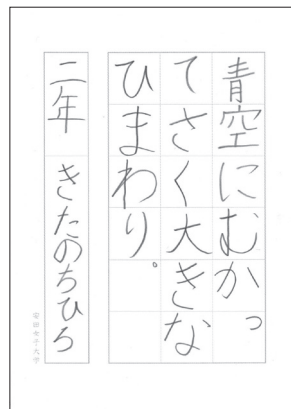 青空にむかっ
てさく大きな
ひまわり。
二年 きたのちひろ
安田女子大学